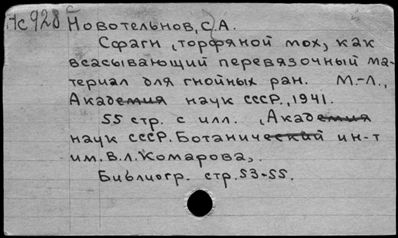 Нс928 Новотельнов, С.А.
Сфагн (торфяной мох) как
всасывающий перевязочный ма-
териал для гнойных ран. М.-Л.,
Академия наук СССР, 1941.
55 стр. с илл. (Академия
наук СССР. Ботанический ин-т
им. В.Л. Комарова).
Библиогр. стр. 53-55.